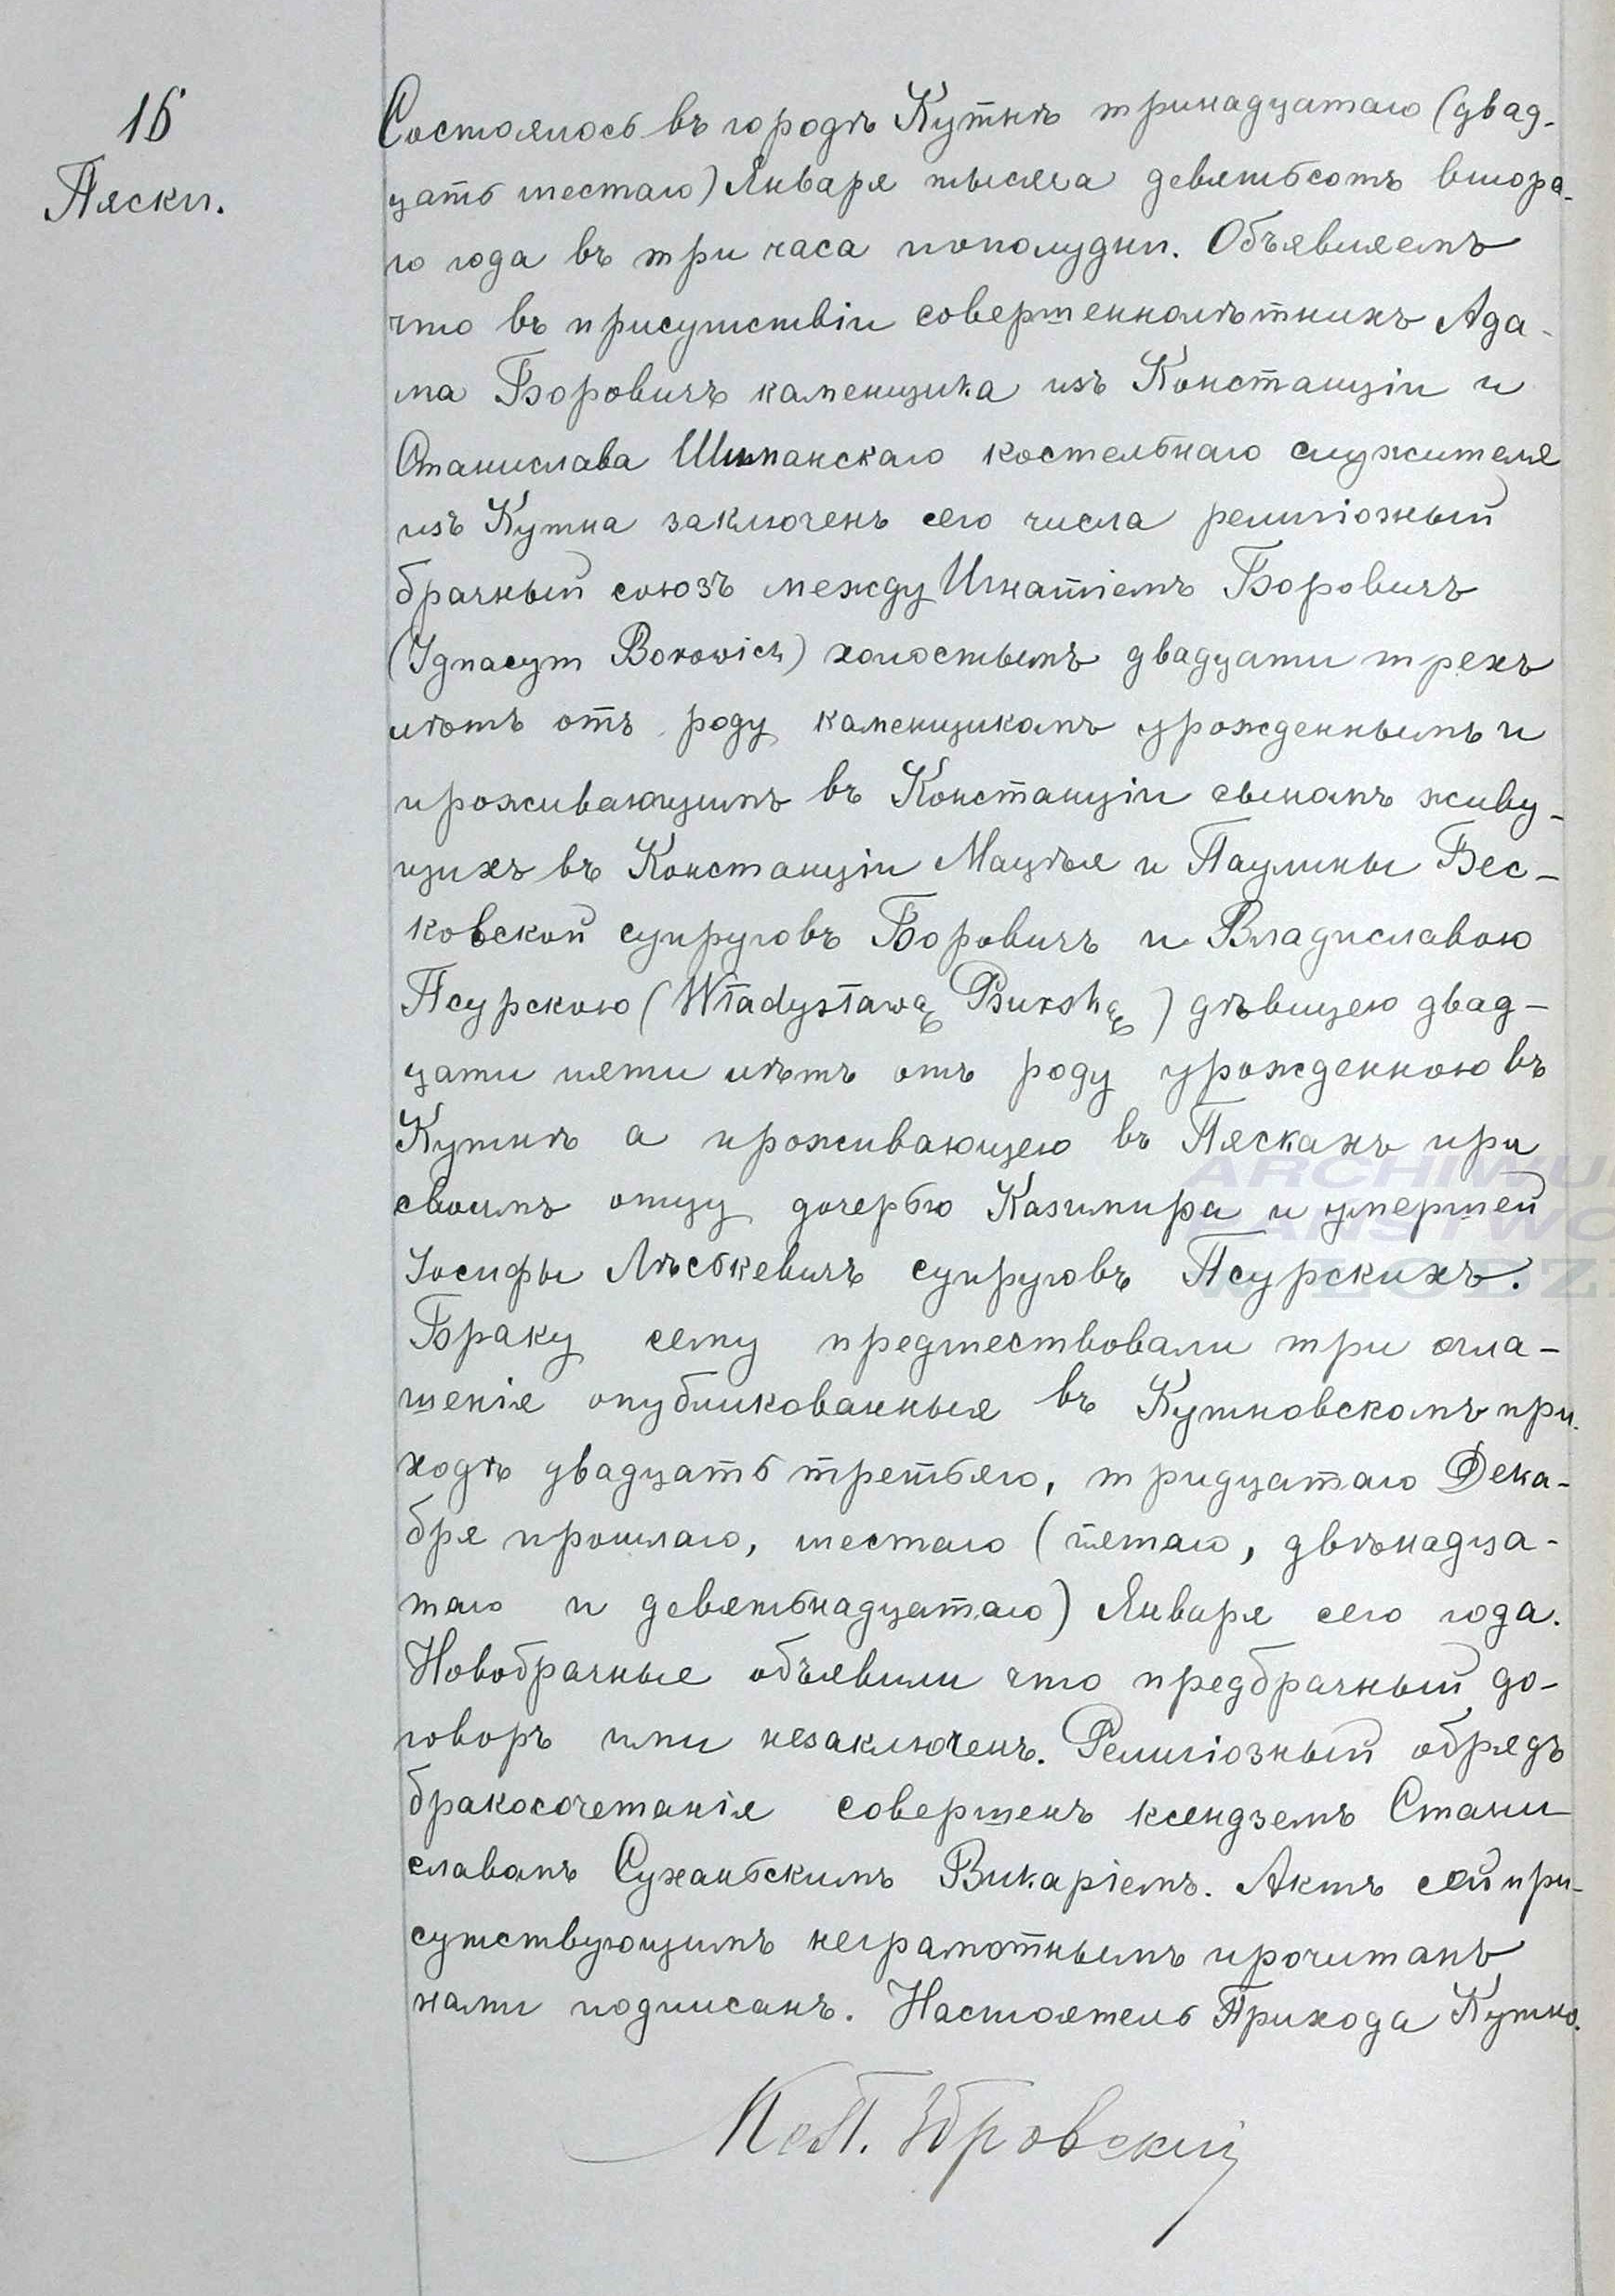 16
Пяски.
Состоялось въ городѣ Кутнѣ тринадцатаго (двад-
цать шестаго) Января тысяча девятьсотъ втора-
го года въ три часа пополудни. Объявляемъ
что въ присутствіи совершеннолѣтнихъ Ада-
ма Боровичъ каменщика изъ Констанціи и
Станислава Шимпанскаго костельнаго служителя
изъ Кутна заключенъ сего числа религіозный
брачный союзъ между Игнатіемъ Боровичъ
(Ignacym Borowicz) холостымъ двадцати трехъ
лѣтъ отъ роду каменщикомъ урожденнымъ и
проживающимъ въ Констанціи сыномъ живу-
щихъ въ Констанціи Мацѣя и Паулины Бес-
ковской супруговъ Боровичъ и Владиславою
Псурскою (Władysławą Psurską) дѣвицею двад-
цати пяти лѣтъ отъ роду урожденною въ
Кутнѣ а проживающею въ Пяскахъ при
своимъ отцу дочерью Казимира и умершей
Іосифы Лѣськевичъ супруговъ Псурскихъ.
Браку сему предшествовали три огла-
шенія опубликованныя въ Кутновскомъ при-
ходѣ двадцать третьяго, тридцатаго Дека-
бря прошлаго, шестаго (пятаго, двѣнадца-
таго и девятьнадцатаго) Января сего года.
Новобрачные объявили что предбрачный до-
говоръ ими незаключенъ. Религіозный обрядъ
бракосочетанія совершенъ ксендземъ Стани
славомъ Суханьскимъ Викаріемъ. Актъ сей при-
сутствующимъ неграмотнымъ прочитанъ
нами подписанъ. Настоятель Прихода Кутно.